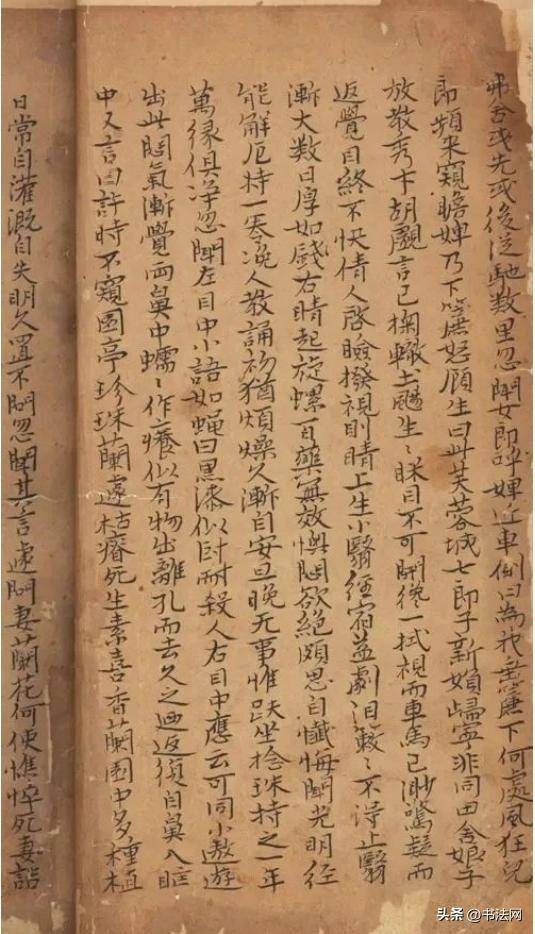 弗舍或先或後從馳数里忽聞女郎呼婢近車側曰為我垂簾下何處風狂兒
郎頻來窺瞻婢乃下簾怒顧生曰此芙蓉城七郎子新婦歸寧非同田舍娘子
放教秀才胡覷言已掬轍土颺生〻眯目不可開纔一拭視而車馬已渺驚疑而
返覺目終不快倩人啓瞼撥視則睛上生小翳經宿益劇淚簌〻不得止翳
漸大数日厚如錢右睛起旋螺百藥無效懊悶欲絕頗思自懺悔聞光明經
能解厄持一卷浼人教誦初猶煩燥久漸自安旦晚无事惟趺坐捻珠持之一年
萬緣俱淨忽聞左目中小語如蠅曰黑漆似叵耐殺人右目中應云可同小遨遊
出此悶氣漸覺兩鼻中蠕〻作癢似有物出離孔而去久之迺返復自鼻入眶
中又言曰許時不窺園亭珍珠蘭遽枯瘠死生素喜香蘭園中多種植
日常自灌溉自失明久置不問忽聞其言遽問妻蘭花何使憔悴死妻詰
头条 @书法网